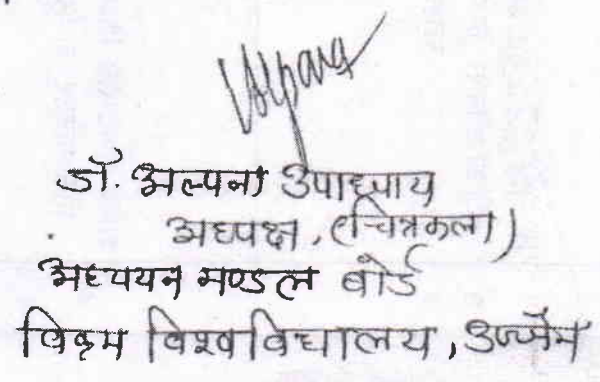 डॉ. अल्पना उपाध्याय
अध्यक्ष, (चित्रकला)
अध्ययन मण्डल बोर्ड
विक्रम विश्वविद्यालय, उज्जैन